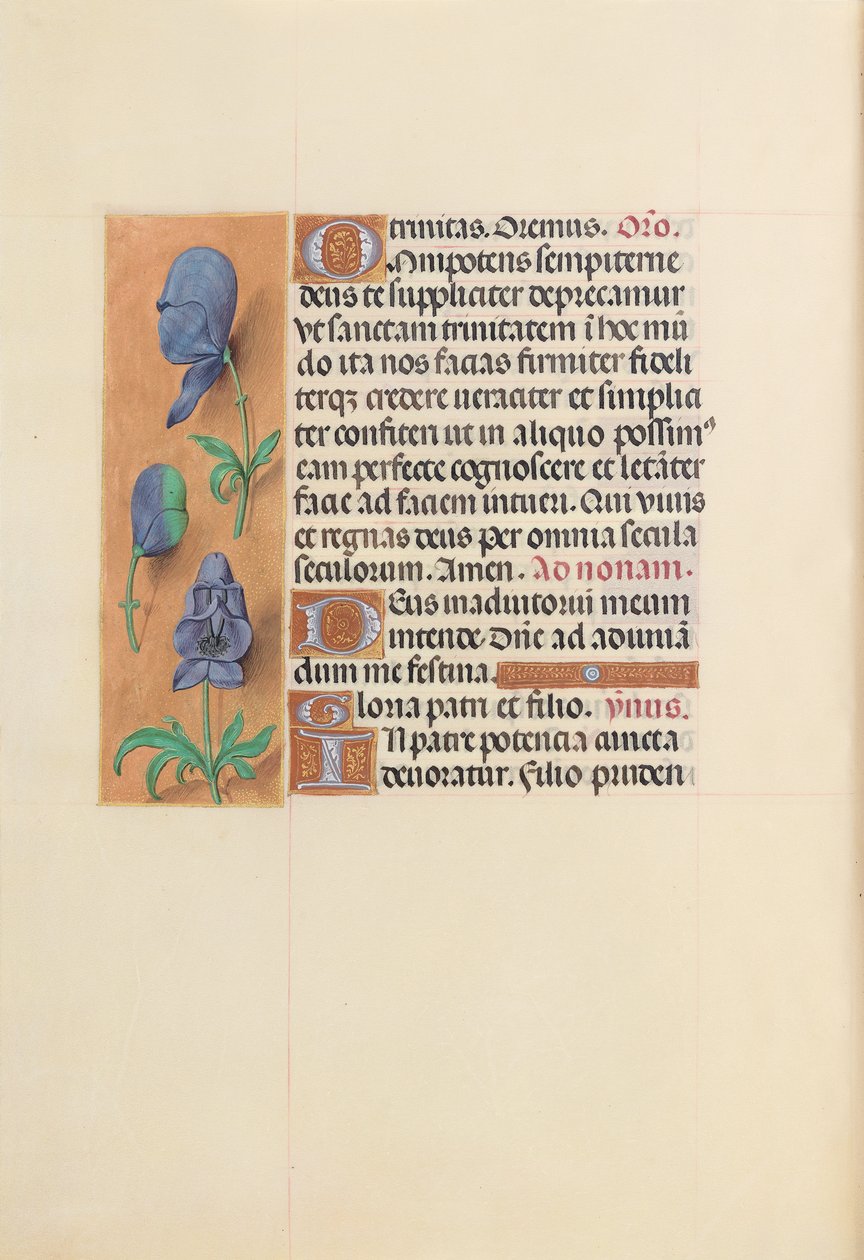 trinitas. Oremus. Oro͂.
Omnipotens sempiterne
deus te suppliciter deprecamur
vt sanctam trinitatem i͂ hoc mu͂
do ita nos facias firmiter fideli
terqꝫ credere ueraciter et simplici
ter confiteri ut in aliquo possimꝰ
eam perfecte cognoscere et leta͂ter
facie ad faciem intueri. Qui viuis
et regnas deus per omnia secula
seculorum. Amen. Ad nonam.
DEus inadiutoriu͂ meum
intende. Dn͂e ad adiuua͂
dum me festina.
Gloria patri et filio. v͂sus.
IN patre potencia cuncta
deuoratur. Filio pruden